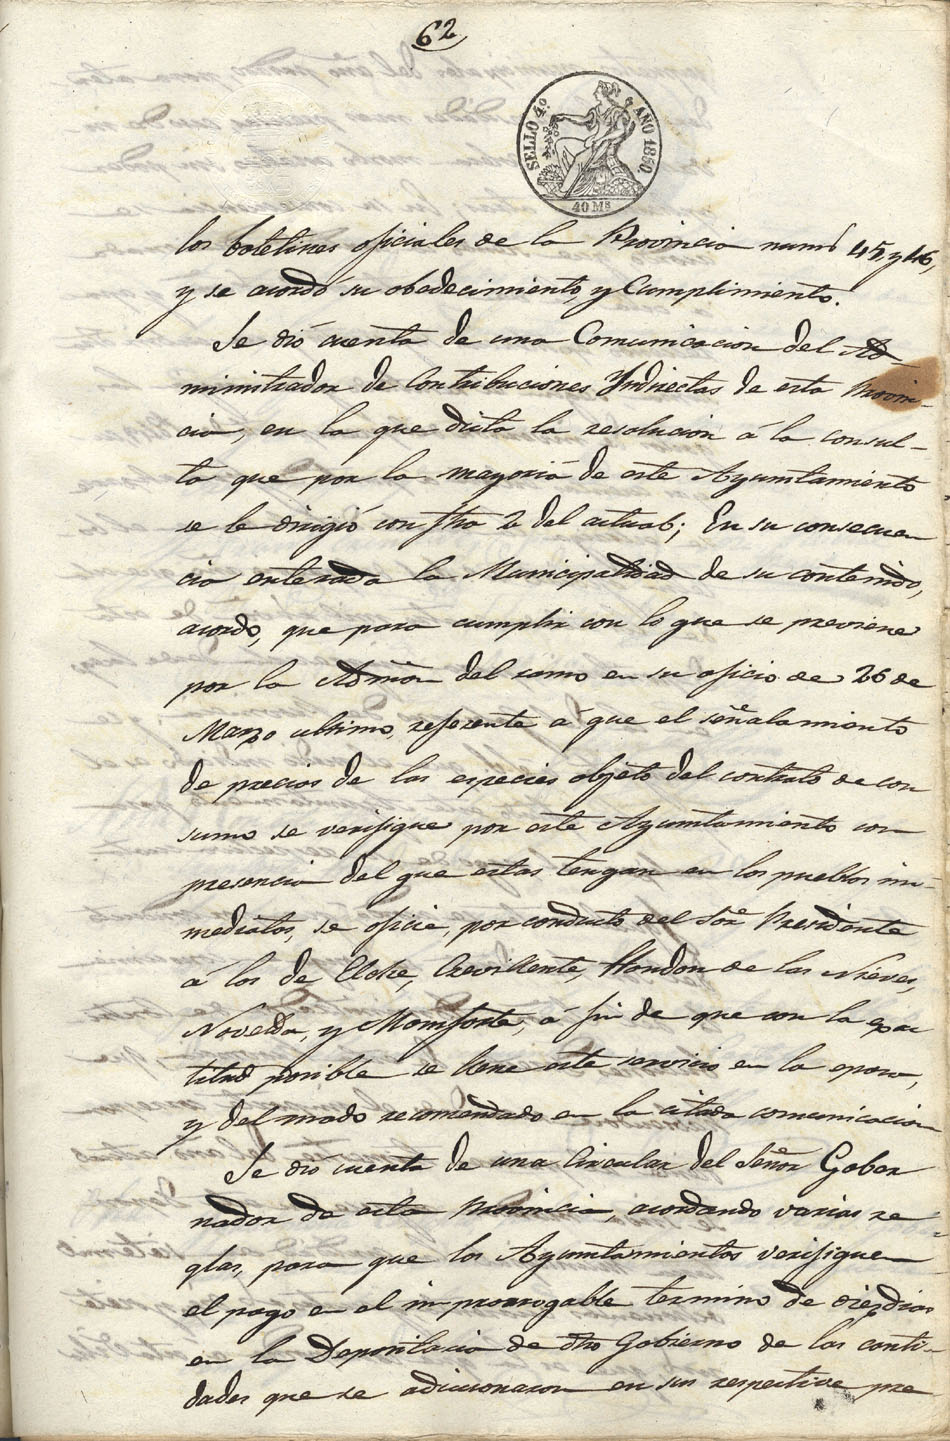 62
SELLO 4.º AÑO 1850.
40 Mˢ
los boletines oficiales de la Provincia numˢ 45, y 46,
y se acordó su obedecimiento, y Cumplimiento.
Se dió cuenta de una Comunicacion del Ad
ministrador de Contribuciones Yndirectas de esta Provin-
cia, en la que dicta la resolucion á la consul-
ta que por la mayoriá de este Ayuntamiento
se le dirigió con fha 2 del actual; En su consecuen
cia enterada la Municipalidad de su contenido,
acordo, que para cumplir con lo que se previene
por la Admôn del ramo en su oficio de 26 de
Marzo ultimo, referente á que el señalamiento
de precios de las especies objeto del contrato de con
sumo se verifique por este Ayuntamiento con
presencia del que estas tengan en los pueblos in-
mediatos, se oficie, por conducto del Sor. Presidente
á los de Elche, Crevillente, Hondon de las Nieves,
Novelda, y Monforte, á fin de que con la exac
titud posible se llene este servicio en la epoca,
y del modo recomendado en la citada comunicacion
Se dió cuenta de una Circular del Señor Gober
nador de esta Provincia, acordando varias re-
glas, para que los Ayuntamientos verifiquen
el pago en el improrrogable termino de diez dias
en la Depositaria de dho Gobierno de las canti-
dades que se adiccionaron en sus respective pre